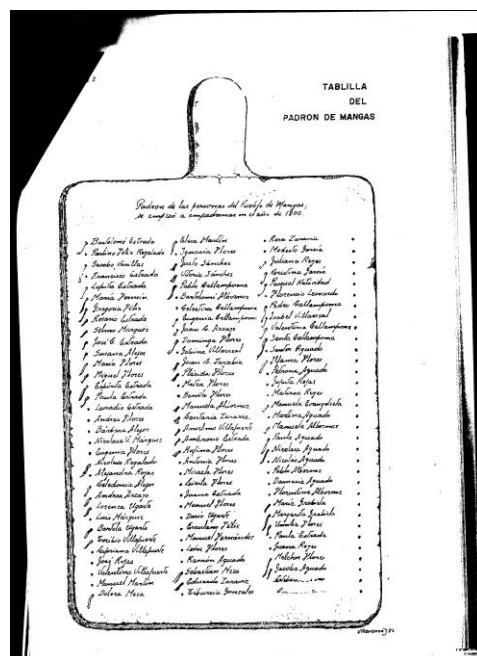 TABLILLA
DEL
PADRON DE MANGAS
Padron de las personas del Pueblo de Mangas,
se empezó a empadronar en el año de 1800.
Bartolomé Estrada
Paulino Félix Regalado
Jacobo Varillas
Francisco Estrado
Lupita Estrada
María Fermín
Gregoria Félix
Rosario Estrada
Selmo Marquez
José C. Estrada
Susana Alejos
María Flores
Miguel Flores
Espírita Estrada
Paula Estrada
Leoradio Estrada
Andrea Flores
Bárbara Alejos
Nicolasa V. Márquez
Eugenia Flores
Nicolasa Regalado
Alejandra Rojas
Celedonia Alejos
Andrea Ascajo
Lorenza Ugarte
Luis Márquez
Bartola Ugarte
Emilio Villafuerte
Saforiana Villafuerte
José Rojas
Valentina Villafuerte
Manuel Martín
Dolora Meza
Elisa Martín
Ignacia Flores
Justo Sánchez
Vitoria Sánchez
Pablo Callampoma
Bartolomé Albornoz
Celestina Callampoma
Eugenia Callampoma
Juan C. Ascajo
Dominga Flores
Juan C. Zarabia
Plácida Flores
Matia Flores
Benita Flores
Manuela Albornoz
Anselmo Villafuerte
Ambrosio Estrada
Rufina Flores
Antonia Flores
Micaela Flores
Juana Estrada
Manuel Flores
Denis Ugarte
Manuel Hernández
León Flores
Ramón Aguado
Sebastián Meza
Eduardo Zarama
Tiburcia Gonzales
Rosa Zaravia
Modesto García
Juliana Reyes
Cristina García
Pasqual Natividad
Florencio Leonardo
Pedro Callampoma
Isabel Villareal
Valentina Callampoma
Santa Callampoma
Santos Aguado
Flores
Petrona Aguado
Jupita Rojas
Matiasa Reyes
Manuela Evangelista
Martina Aguado
Mamerto Albornoz
Paula Aguado
Nicolasa Aguado
Nicolás Aguado
Pablo Albornoz
Damacia Aguado
Florentina Albornoz
María Grabiela
Margarita Grabiela
Flores
Paula Estrada
Juana Reyes
Melchor Flores
Jacoba Aguado
Esteban